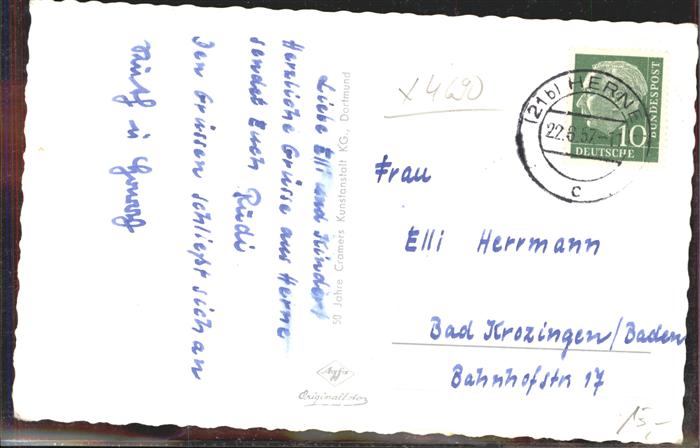 Liebe Elli und Kinder!
Herzliche Grüsse aus Herne
sendet Euch Rudi.
Den Grüssen schließt sich an
50 Jahre Cramers Kunstanstalt KG., Dortmund
Agfa
Originalfoto
x 4690
(21b) HERNE
22.6.57
c
10
DEUTSCHE
BUNDESPOST
Frau
Elli Herrmann
Bad Krozingen/Baden
Bahnhofstr 17
15,-